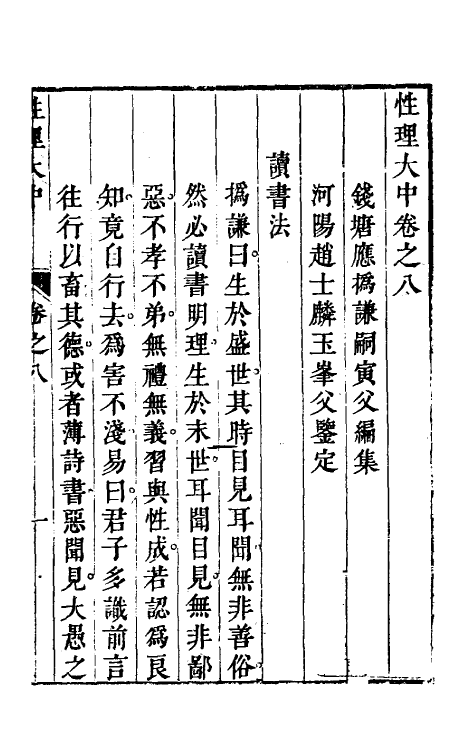 性理大中卷之八
錢塘應撝謙嗣寅父編集
河陽趙士麟玉峯父鑒定
讀書法
撝謙曰生於盛世其時目見耳聞無非善俗
然必讀書明理生於末世耳聞目見無非鄙
惡不孝不弟無禮無義習與性成若認爲良
知竟自行去爲害不淺易曰君子多識前言
往行以畜其德或者薄詩書惡聞見大愚之
性理大中 卷之八 一